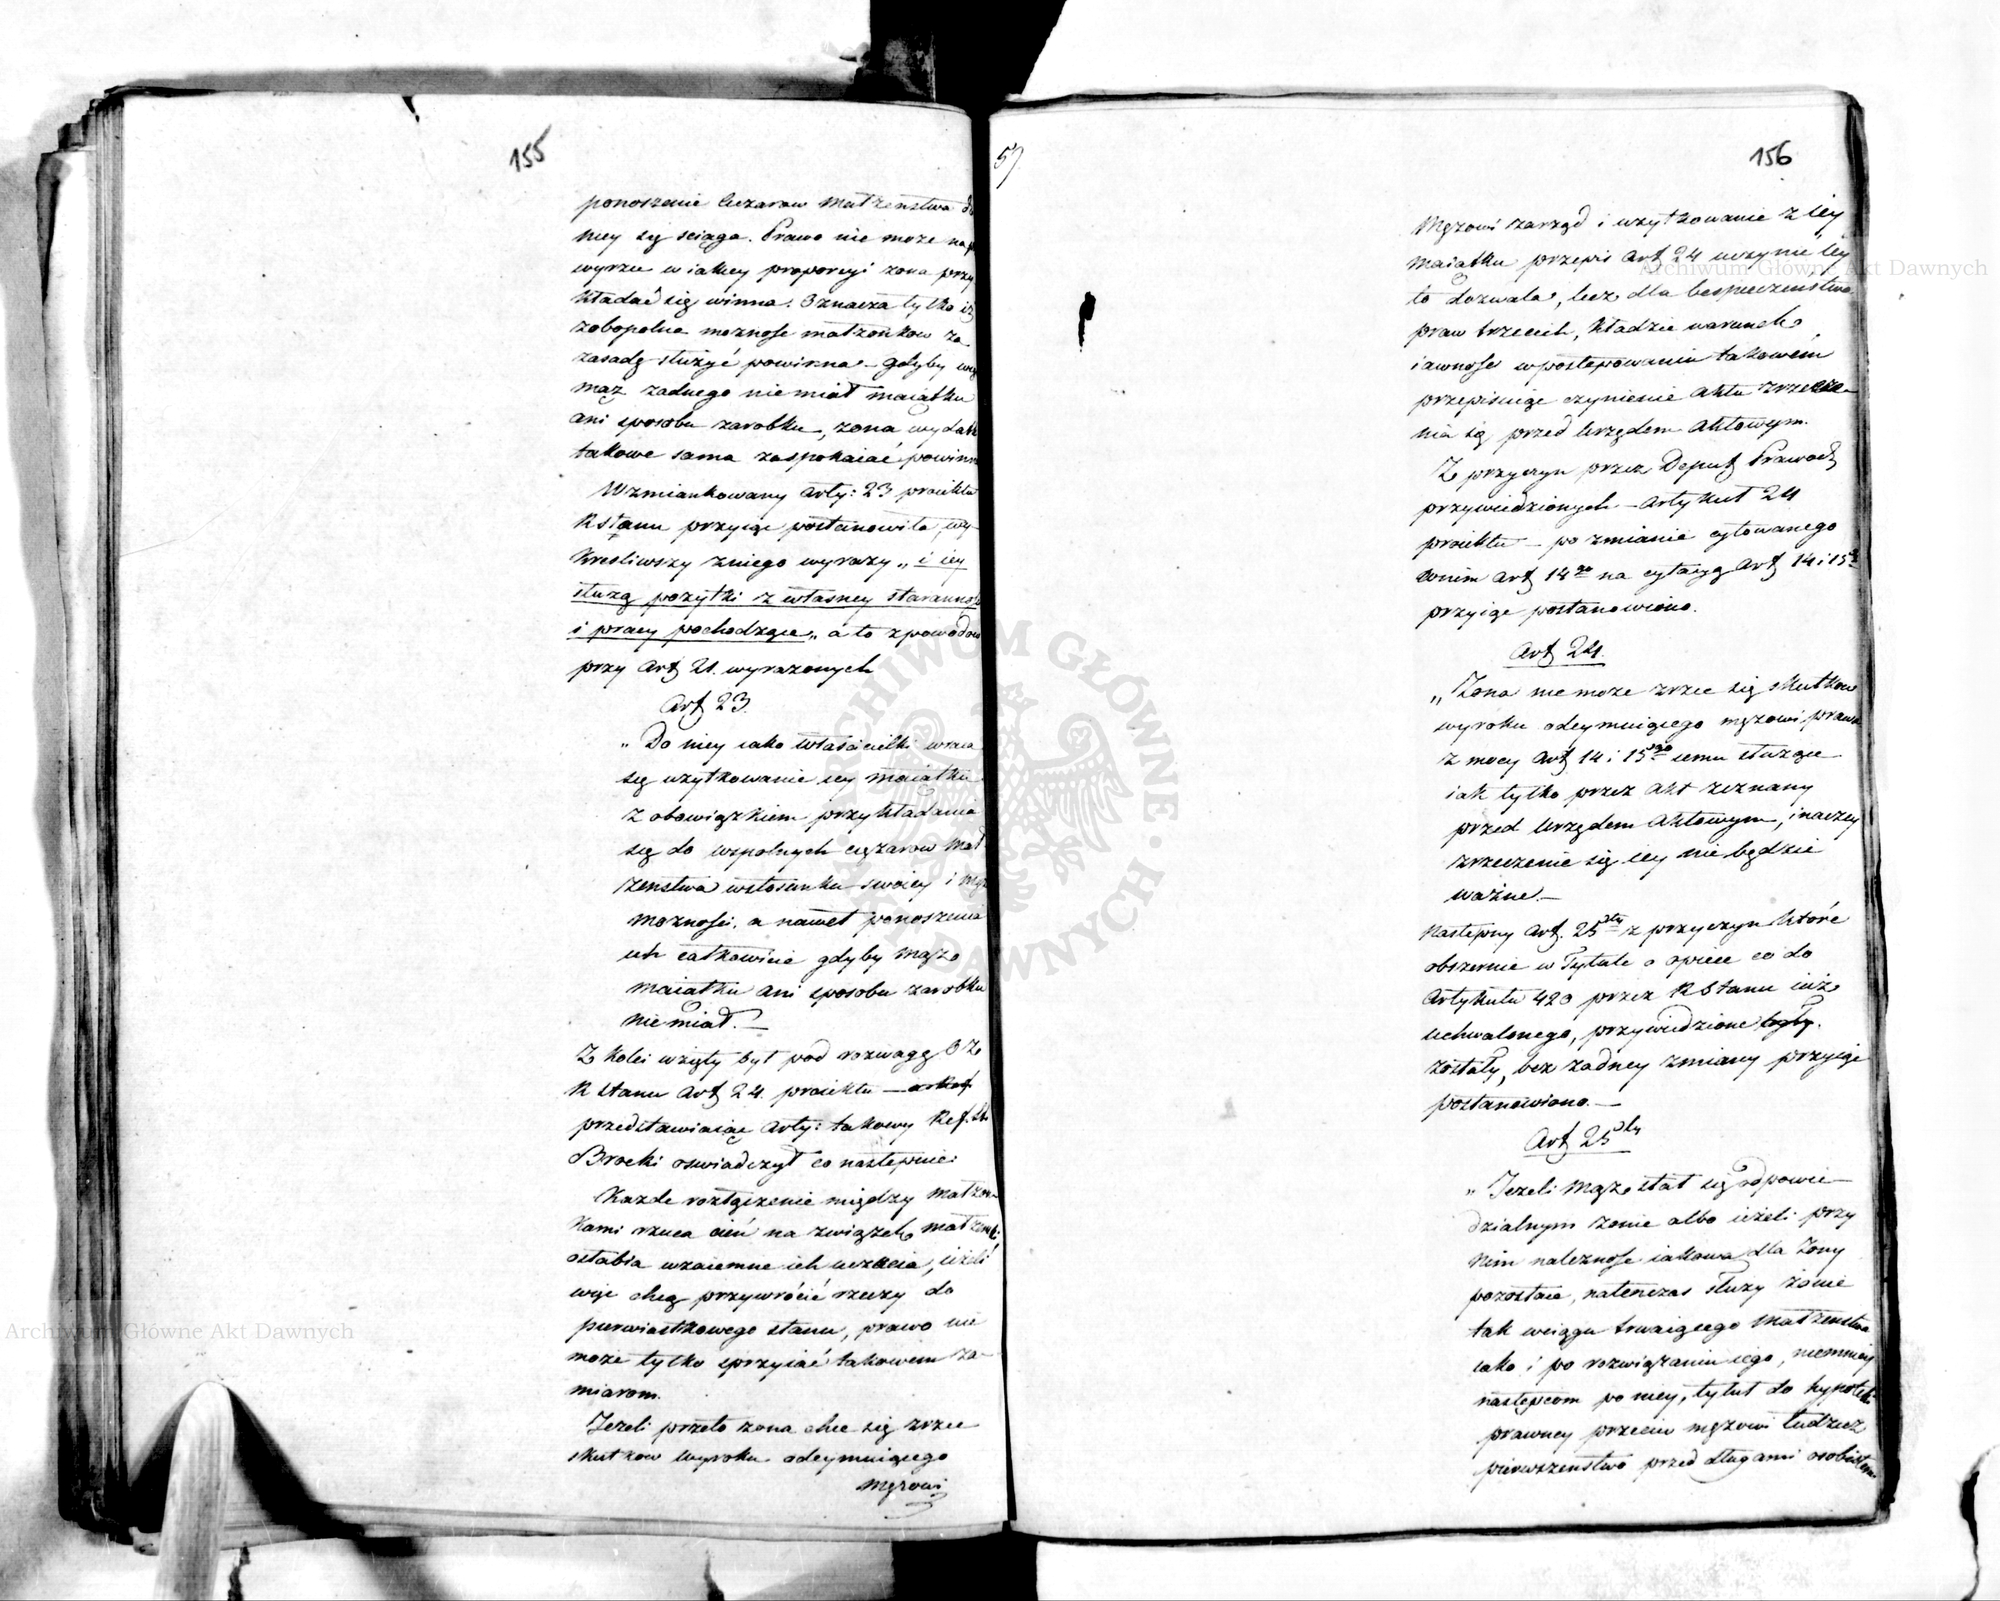 155
ponoszenie ciężarow Małżenstwa do
niey się sciąga. Prawo nie może
wyrzec w iakiey proporcyi żona przy
kładać się winna. Oznacza tylko iż
zobopolna możnosc małżonkow za
zasadę służyć powinna – gdyby
mąż żadnego nie miał maiątku
ani sposobu zarobku, żona wydatk
takowe sama zaspokaiać powinn
Wzmiankowany Arty: 23 proiektu
R Stanu przyiąc postanowiła, wy-
kresliwszy zniego wyrazy „ i iey
służą pożytki z własney starannosc
i pracy pochodzące„ a to z powodow
przy Art 21. wyrażonych
Art 23.
„ Do niey iako włascicielki wraca
się użytkowanie iey maiątku
z obowiązkiem przykładania
się do wspolnych ciężarow Mał
żenstwa w stosunku swoiey i męż
możnosci, a nawet ponoszenia
ich całkowicie gdyby mąż
maiątku ani sposobu zarobku
nie miał. –
Z kolei wzięty był pod rozwagę
R Stanu Art 24. proiektu –
przedstawiaiąc Arty: takowy Ref. St.
Brocki oswiadczył co następuie:
Każde rozłączenie między Małżon-
kami rzuca cień na związek małżenski,
osłabia wzaiemne ich uczucia, ieżeli
więc chcą przywrócić rzeczy do
pierwiastkowego stanu, prawo nie
może tylko sprzyiać takowem za-
miarom.
Jeżeli przeto żona chce się zrzec
skutkow wyroku odeymuiącego
Mężowi
57
156
Mężowi zarząd i użytkowanie z iey
maiątku przepis Art 24 uczynić iey
to dozwala, lecz dla bespieczenstwa
praw trzecich, kładzie warunek
iawnosc w postępowaniu takowém
przepisuiąc czynienie Aktu zrzecze-
nia się przed Urzędem Aktowym.
Z przyczyn przez Deput Prawod
przywiedzionych – Artykuł 24
proiektu – po zmianie cytowanego
w nim Art 14go na cytacyą Art 14 i 15go
przyiąc postanowiono.
Art 24.
„ Żona nie może zrzec się skutkow
wyroku odeymuiącego mężowi prawa
z mocy Art 14 i 15go iemu służące
iak tylko przez Akt zeznany
przed Urzędem Aktowym, inaczey
zrzeczenie się iey nie będzie
ważne. –
Następny Art. 25ty z przyczyn które
obszernie w Tytule o opiece co do
Artykułu 420 przez R Stanu iuż
uchwalonego, przywiedzione były.
zostały, bez żadney zmiany przyiąc
postanowiono. –
Art 25ty
„ Jeżeli Mąż stał się odpowie-
dzialnym żonie albo ieżeli przy
nim należnosc iakowa dla żony
pozostaie, natenczas służy żonie
tak wciągu trwaiącego Małżenstwa
iako i po rozwiązaniu iego, niemniey
następcom po niey, tytuł do hypoteki
prawney przeciw mężowi tudzież
pierwszenstwo przed długami osobistemi
Archiwum Główne Akt Dawnych
Archiwum Główne Akt Dawnych
ARCHIWUM GŁÓWNE AKT DAWNYCH